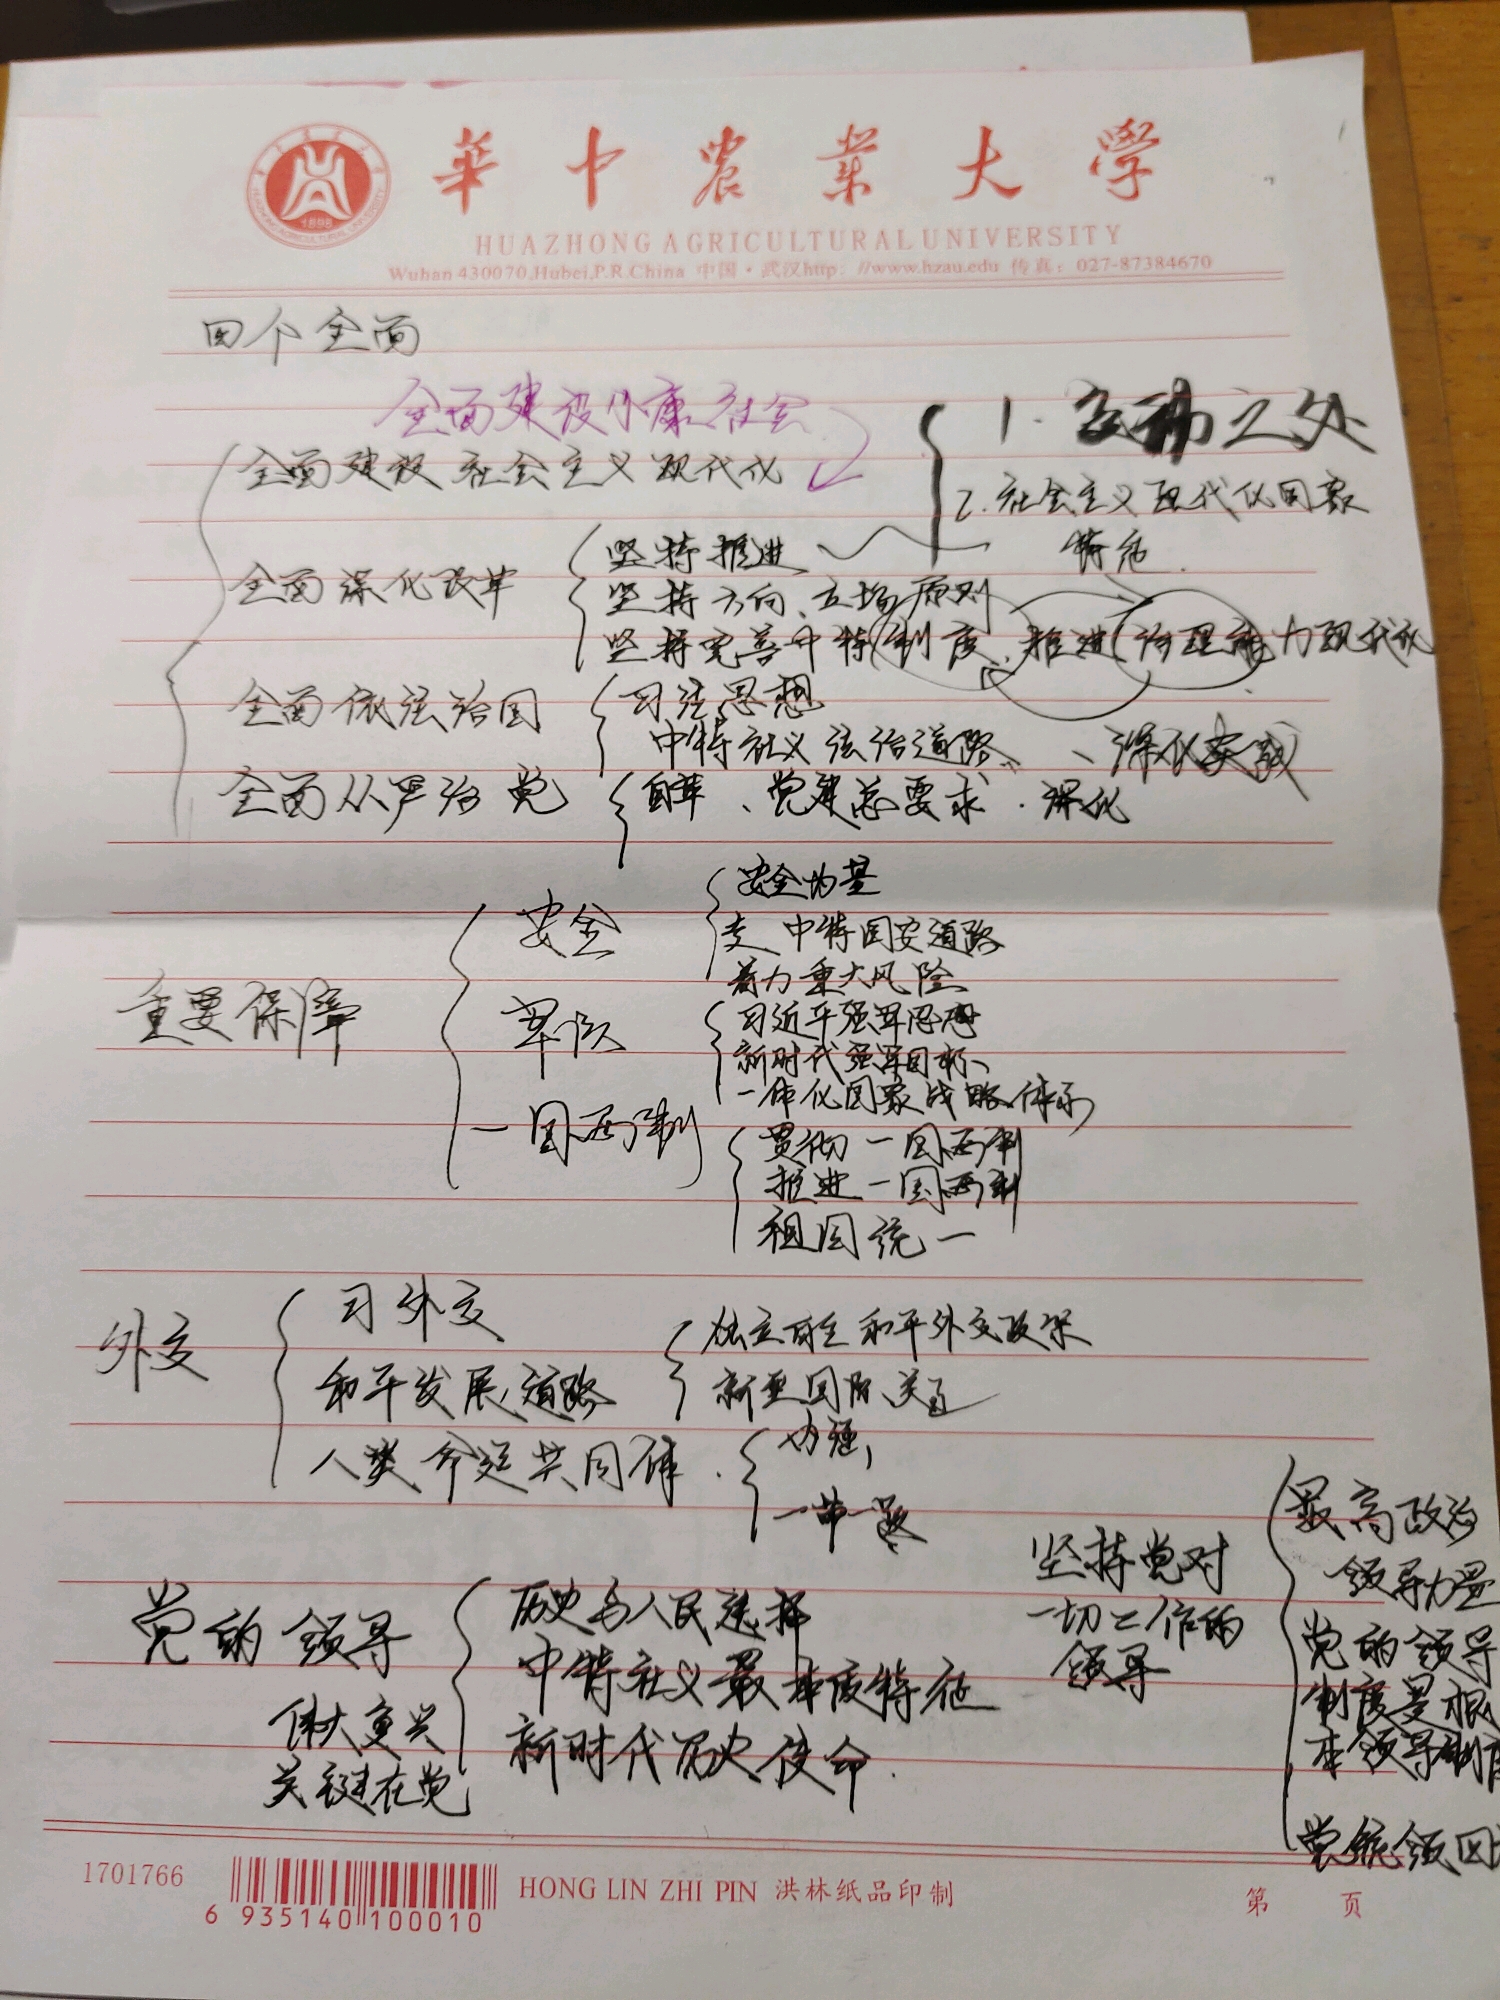 華中農業大學
HUAZHONG AGRICULTURAL UNIVERSITY
Wuhan 430070,Hubei,P.R.China 中国·武汉http: //www.hzau.edu 传真: 027-87384670
四个全面
全面建设小康社会
全面建设社会主义现代化
1. 之处
2. 社会主义现代化国家
特征.
全面深化改革
坚持推进
坚持方向、立场原则
坚持完善中特制度、推进治理能力现代化
全面依法治国
习法思想
中特社义法治道路 、深化实践
全面从严治党
自革、党建总要求.深化
重要保障
安全
安全为基
走中特国安道路
着力重大风险
军队
习近平强军思想
新时代强军目标、
一体化国家战略体系
一国两制
贯彻一国两制
推进一国两制
祖国统一
外交
习外交
和平发展道路
独立自主和平外交政策
新型国际关系
人类命运共同体.
一带一路
党的领导
伟大复兴
关键在党
历史与人民选择
中特社义最本质特征
新时代历史使命.
坚持党对
一切工作的
领导
最高政治
领导力量
党的领导
制度是根
本领导制度
党统领
1701766
6 935140 100010
HONG LIN ZHI PIN 洪林纸品印制
第 页